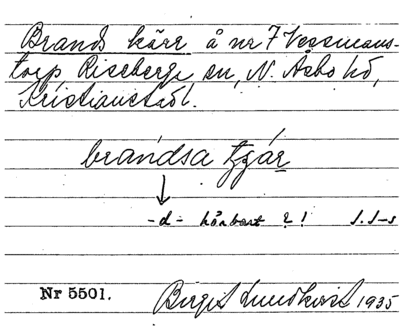 Brands kärr å nr 7 Vessmans-
torp Riseberga sn, N. Åsbo hd,
Kristianst. l.
brandsa
-d- hörbart ? !
Nr 5501. Birgit Lundkvist 1935